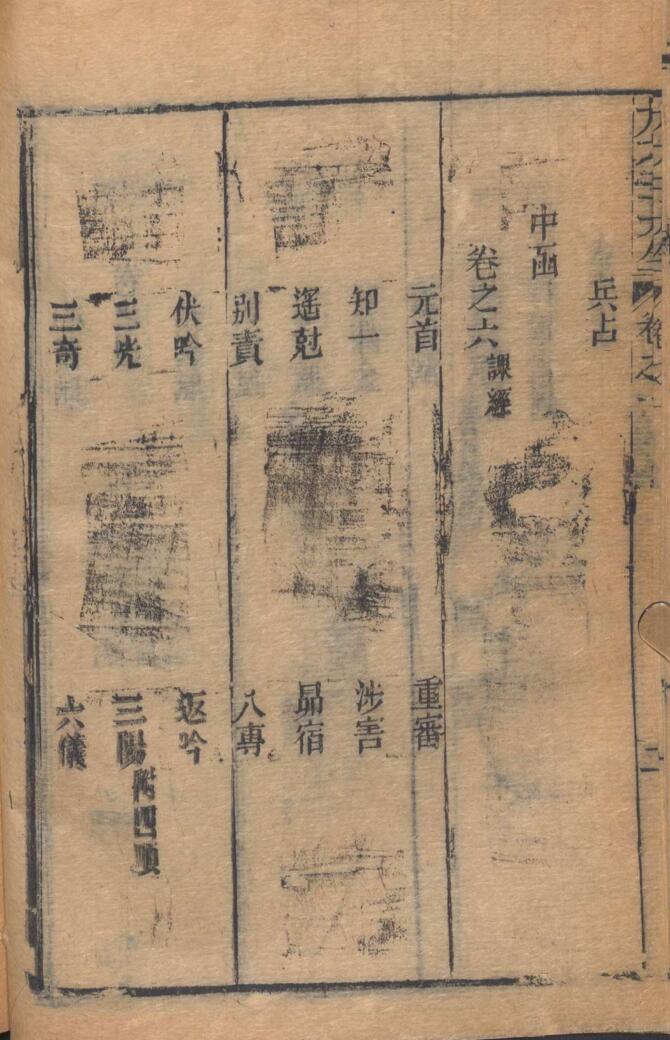 兵占
中凾
卷之六 課經
元首 重審
知一 涉害
遙尅 昴宿
別責 八專
伏吟 返吟
三光 三陽附四順
三奇 六儀